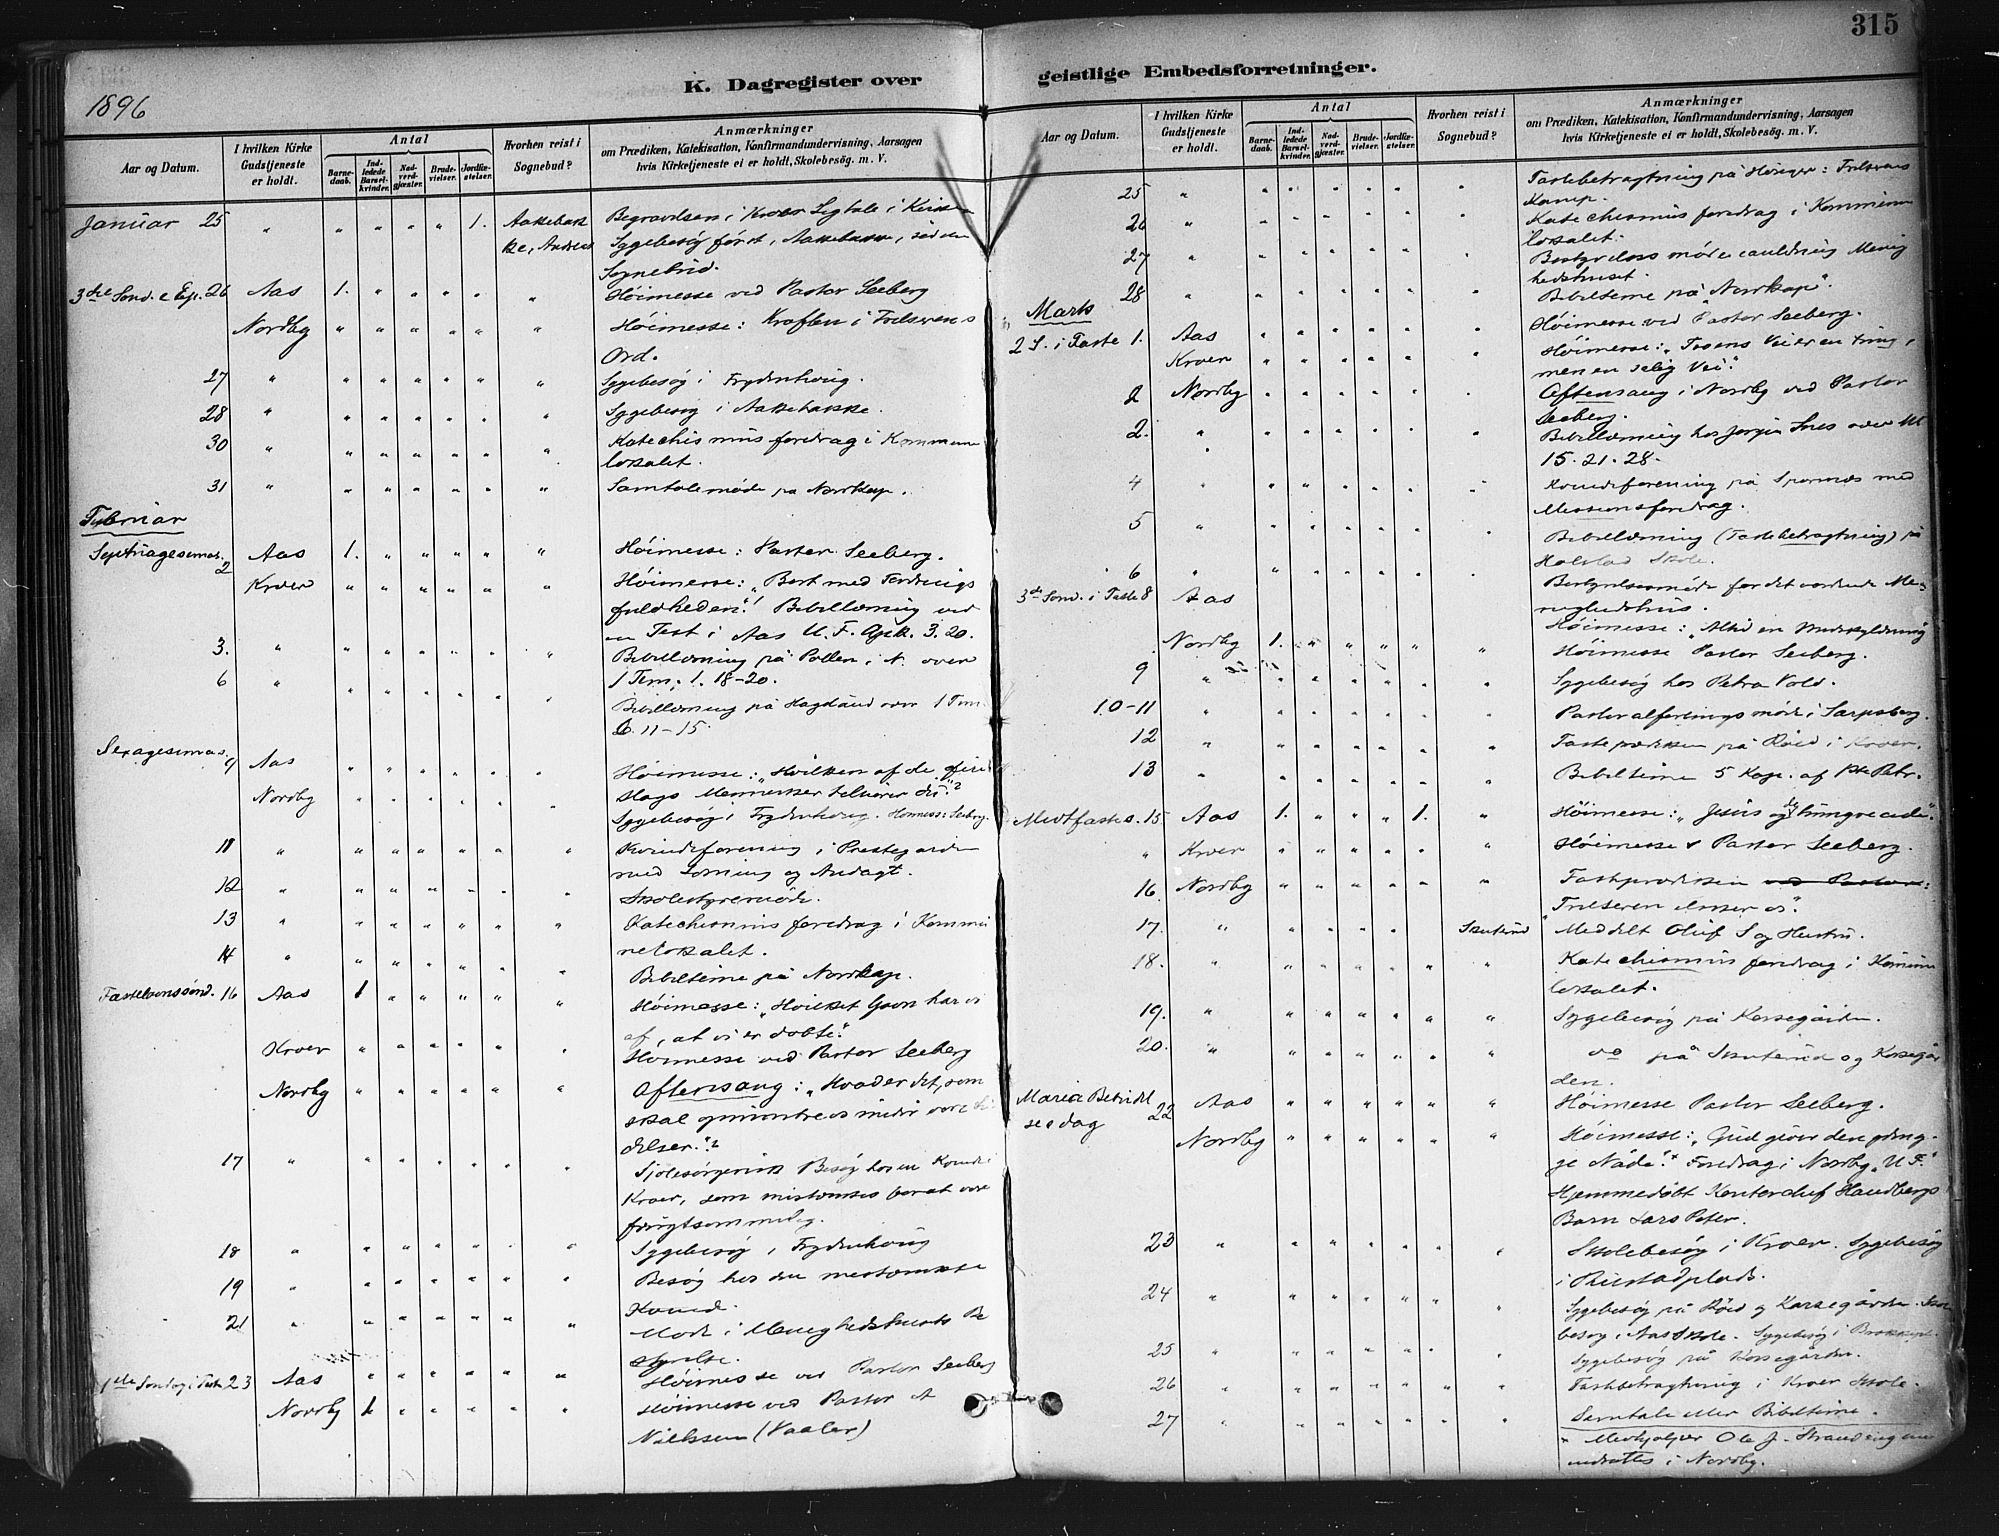 315
K. Dagregister over
geistlige Embedsforretninger.
1896
Aar og Datum.
I hvilken Kirke Gudstjeneste er holdt.
Antal
Barnedaab.
Indledede Barselkvinder.
Nadverdgjæster.
Brudevielser.
Jordfæstelser.
Hvorhen reist i Sognebud?
Anmærkninger
om Prædiken, Katekisation, Konfirmandundervisning, Aarsagen
hvis Kirketjeneste ei er holdt, Skolebesög. m. V.
Januar 25 " " " " " 1. Aakebakke, Andreas Begravelsen i Kroer Ligtale i Kirken
Sygebesög först, Aakebakke, saa
Sognebud.
3die Sond. e Ep. 26 Aas 1. " " " " " Höimesse ved Pastor Seeberg
Nordby " " " " " " Höimesse: Kraften i Frelserens
Ord.
27 " " " " " " " Sygebesög i Frydenhoug.
28 " " " " " " " Sygebesög i Aakebakke.
30 " " " " " " " Katechismusforedrag i Kommune
lokalet.
31 " " " " " " " Samtalemöde på Nordkap.
Februar
Septuagesimas. 2 Aas 1. " " " " " Höimesse: Pastor Seeberg.
Kroer " " " " " " Höimesse: "Bort med Ferdings
fuldheden"! Bibellæsning ved
en Test i Aas U. F. Apk. 3. 20.
3. " " " " " " " Bibellæsning på Pollen i N. over
1 Tim. 1. 18-20.
6 " " " " " " " Bibellæsning på Hogstad over 1 Tim
6. 11-15.
Sexagesimas. 9 Aas " " " " " " Höimesse: "Hvilken af de fire
Nordby " " " " " " Slags Mennesker tilhörer du?"
Sygebesög i Frydenhoug. Höimesse: Seeberg.
11 " " " " " " " Kvindeforening i Prestegården
med Læsning og Andagt.
12 " " " " " " " Skolestyremöde.
13 " " " " " " " Katechismus foredrag i Kommu
nelokalet.
14 " " " " " " " Bibeltime på Nordkap.
Fastelavnssönd. 16 Aas 1 " " " " " Höimesse: "Hvilket Gavn har vi
af, at vi er döbte".
Kroer " " " " " " Höimesse ved Pastor Seeberg
Nordby " " " " " " Aftensang: "Hvad er det, som
skal opmuntre os under vore Li
delser"?
17 " " " " " " " Sjælesörgerisk Besög hos en Kvinde i
Kroer, som mistænkes for at være
frugtsommelig.
18 " " " " " " " Sygebesög i Frydenhoug
19 " " " " " " " Besög hos den mistænkte
Kvind.
21 " " " " " " " Möde i Menighedshusets Be
styrelse.
1ste Söndag i Faste 23 Aas " " " " " " Höimesse ved Pastor Seeberg
Nordby 1 " " " " " Höimesse ved Pastor A
Nielssen (Vaaler)
Aar og Datum.
I hvilken Kirke Gudstjeneste er holdt.
Antal
Barnedaab.
Indledede Barselkvinder.
Nadverdgjæster.
Brudevielser.
Jordfæstelser.
Hvorhen reist i Sognebud?
Anmærkninger
om Prædiken, Katekisation, Konfirmandundervisning, Aarsagen
hvis Kirketjeneste ei er holdt, Skolebesög. m. V.
25 " " " " " " " Fastebetragtning på : Frelserens
Kamp.
26 " " " " " " " Katechismus foredrag i Kommune
lokalet.
27 " " " " " " " Bestyrelses möde Menig
hedshuset.
28 " " " " " " " Bibeltime på "Nordkap".
Marts
2 S. i Faste 1. Aas " " " " " " Höimesse ved Pastor Seeberg.
Kroer " " " " " " Höimesse: "Troens Vei er en trang,
men en salig Vei".
2 Nordby " " " " " " Aftensang i Nordby ved Pastor
Seeberg.
2. " " " " " " " Bibellæsning hos Jörgen over Mt
15. 21. 28.
4 " " " " " " " Kvindeforening på Sponnæs med
Missionsforedrag.
5 " " " " " " " Bibellæsning (Fastebetragtning) på
Holstad Skole.
6 " " " " " " " Bestyrelsesmöde for det vordende Me
nighedshus.
3die Sond. i Faste 8 Aas Höimesse: "Altid en Undskyldning
Nordby 1. " " " " " Höimesse Pastor Seeberg.
9 " " " " " " " Sygebesög hos Petra Vold.
10-11 " " " " " " " Pastoralforenings möde i Sarpsborg.
12 " " " " " " " Fasteprædiken på Röed i Kroer.
13 " " " " " " " Bibeltime 5 Kap. af 1ste Petr.
Midtfastes. 15 Aas 1. " " " 1. " Höimesse: "Jesus og de hungrende".
" Kroer " " " " " " Höimesse v Pastor Seeberg.
16 Nordby " " " " " " Fasteprædiken ved Pastor:
"Frelseren elsker os".
17. " " " " " " Skuterud Meddelt Oluf S og Hustru.
18. " " " " " " " Katechismus foredrag i Kommune
lokalet.
19. " " " " " " " Sygebesög på Korsegården.
20. " " " " " " " do på Skuterud og Korsegår
den.
Maria Bebudel
sesdag 22 Aas " " " " " " Höimesse Pastor Seeberg.
Nordby " " " " " " Höimesse: "Gud giver den ydmy-
ge Nåde". Foredrag i Nordby "U F."
Hjemmedöbt Kontorchef Haudbergs
Barn Lars Peter.
23 " " " " " " " Skolebesög i Kroer. Sygebesög
i Rustadplads.
24 " " " " " " " Sygebesög på Röed og Korsegården. Skole
besög i Aas Skole. Sygebesög i
25 " " " " " " " Sygebesög på Korsegården.
26 " " " " " " " Fastebetragtning i Kroer Skole.
27 " " " " " " " Samtale eller Bibeltime.
" Medhjælper Ole J.
indsattes i Nordby.